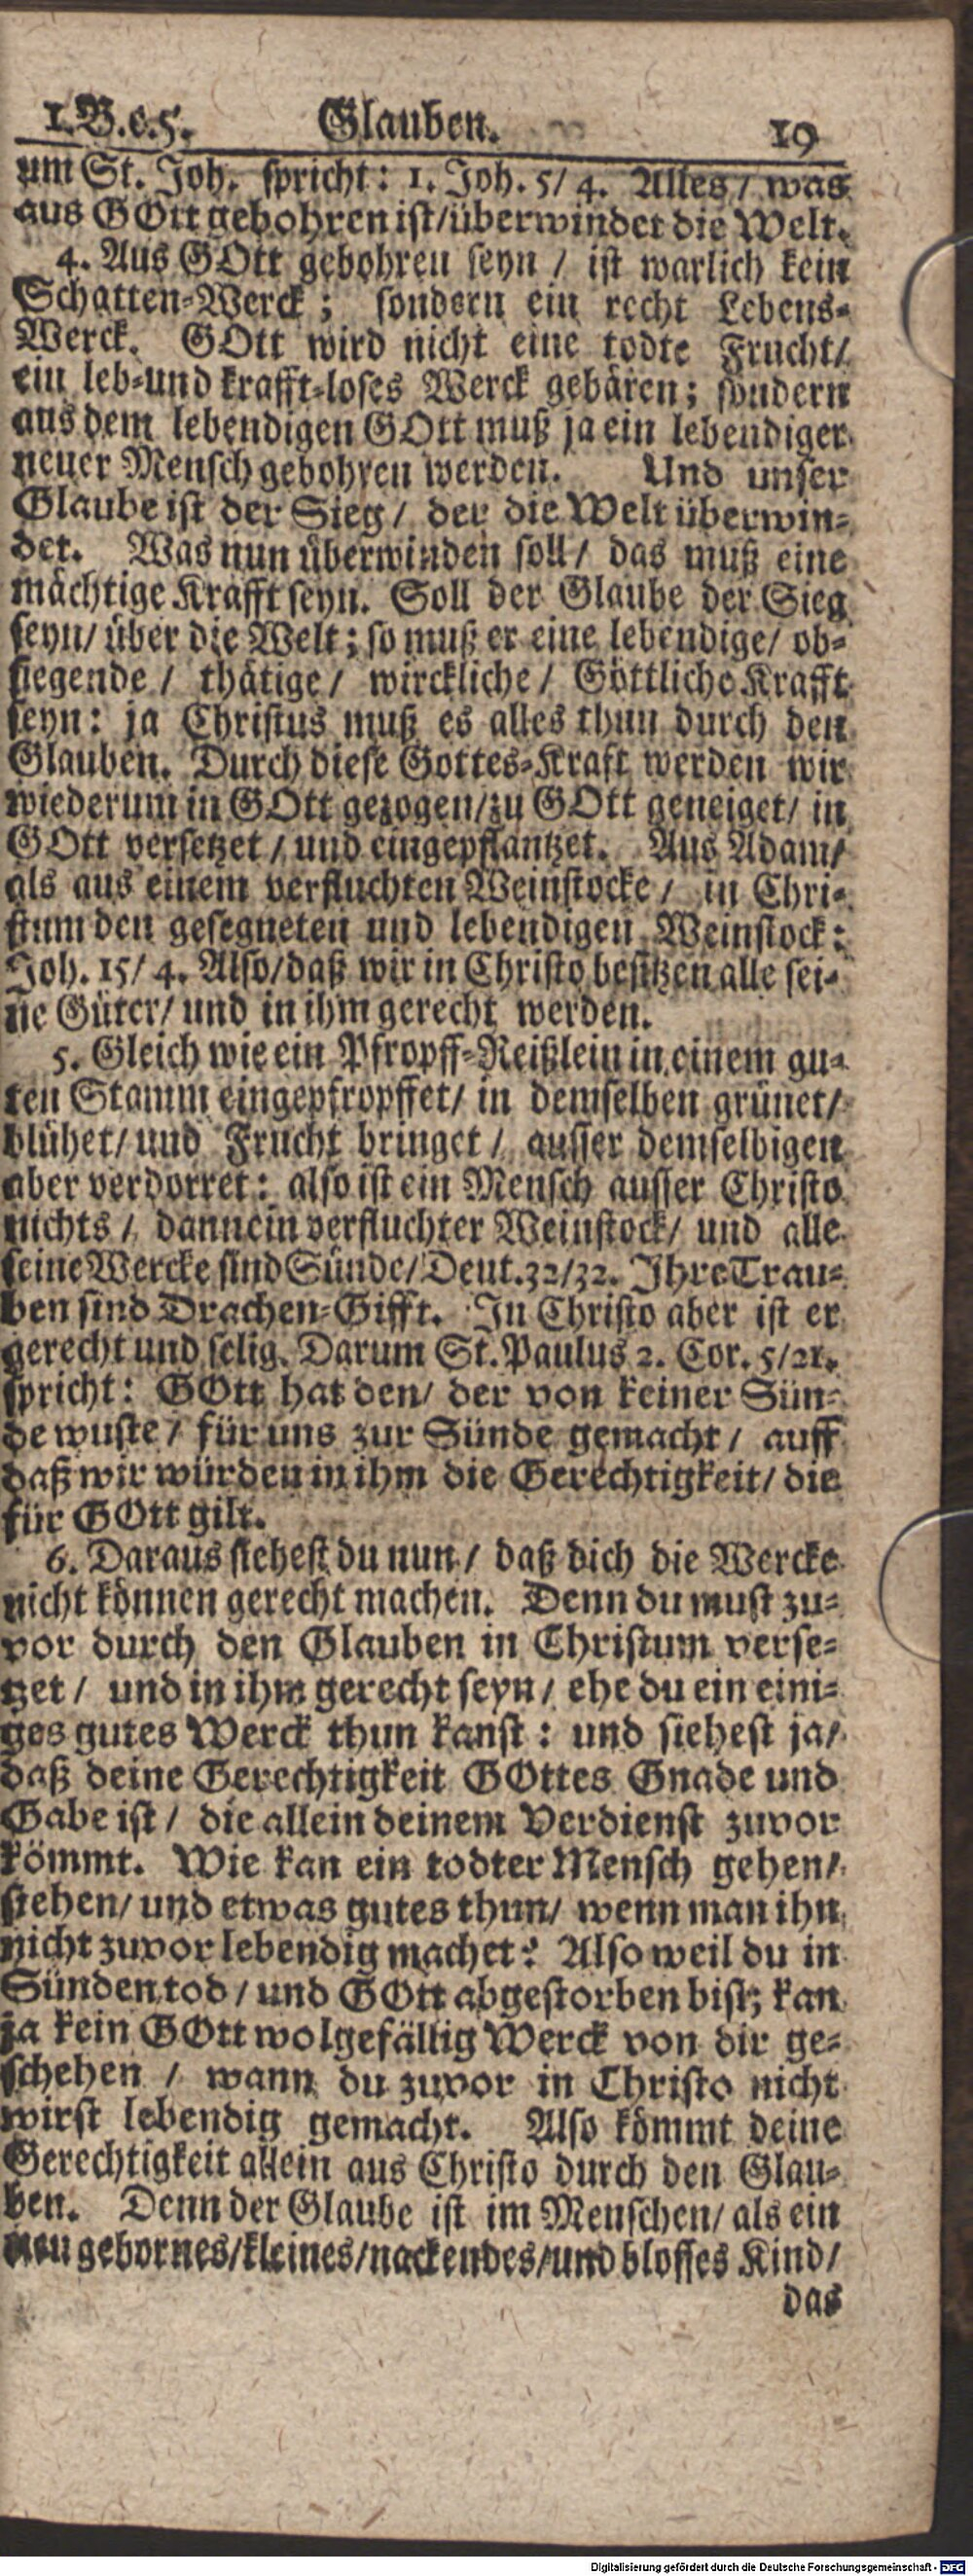 1.B.c.5. Glauben. 19
um St. Joh. spricht: 1. Joh. 5/ 4. Alles / was
aus GOtt gebohren ist/überwindet die Welt.
4. Aus GOtt gebohren seyn / ist warlich kein
Schatten-Werck; sondern ein recht Lebens-
Werck. GOtt wird nicht eine todte Frucht/
ein leb-und krafft-loses Werck gebären; sondern
aus dem lebendigen GOtt muß ja ein lebendiger
neuer Mensch gebohren werden. Und unser
Glaube ist der Sieg / der die Welt überwin-
det. Was nun überwinden soll / das muß eine
mächtige Krafft seyn. Soll der Glaube der Sieg
seyn/ über die Welt; so muß er eine lebendige/ ob-
siegende / thätige / wirckliche / Göttliche Krafft
seyn: ja Christus muß es alles thun durch den
Glauben. Durch diese Gottes-Kraft werden wir
wiederum in GOtt gezogen/zu GOtt geneiget/ in
GOtt versetzet / und eingepflantzet. Aus Adam/
als aus einem verfluchten Weinstocke / in Chri-
stum den gesegneten und lebendigen Weinstock:
Joh. 15/ 4. Also/daß wir in Christo besitzen alle sei-
ne Güter/ und in ihm gerecht werden.
5. Gleich wie ein Pfropff-Reißlein in einem gu-
ten Stamm eingepfropffet/ in demselben grünet/
blühet/ und Frucht bringet / ausser demselbigen
aber verdorret: also ist ein Mensch ausser Christo
nichts / dann ein verfluchter Weinstock/ und alle
seine Wercke sind Sünde/ Deut. 32/32. Ihre Trau-
ben sind Drachen-Gifft. In Christo aber ist er
gerecht und selig. Darum St. Paulus 2. Cor. 5/21.
spricht: GOtt hat den/ der von keiner Sün-
de wuste / für uns zur Sünde gemacht / auff
daß wir würden in ihm die Gerechtigkeit/ die
für GOtt gilt.
6. Daraus siehest du nun / daß dich die Wercke
nicht können gerecht machen. Denn du must zu-
vor durch den Glauben in Christum verse-
tzet / und in ihm gerecht seyn / ehe du ein eini-
ges gutes Werck thun kanst: und siehest ja/
daß deine Gerechtigkeit GOttes Gnade und
Gabe ist / die allein deinem Verdienst zuvor
kömmt. Wie kan ein todter Mensch gehen/
stehen/ und etwas gutes thun/ wenn man ihn
nicht zuvor lebendig machet? Also weil du in
Sünden tod / und GOtt abgestorben bist; kan
ja kein GOtt wolgefällig Werck von dir ge-
schehen / wann du zuvor in Christo nicht
wirst lebendig gemacht. Also kömmt deine
Gerechtigkeit allein aus Christo durch den Glau-
ben. Denn der Glaube ist im Menschen/ als ein
neu gebornes/kleines/nackendes/und blosses Kind/
das
Digitalisierung gefördert durch die Deutsche Forschungsgemeinschaft - DFG